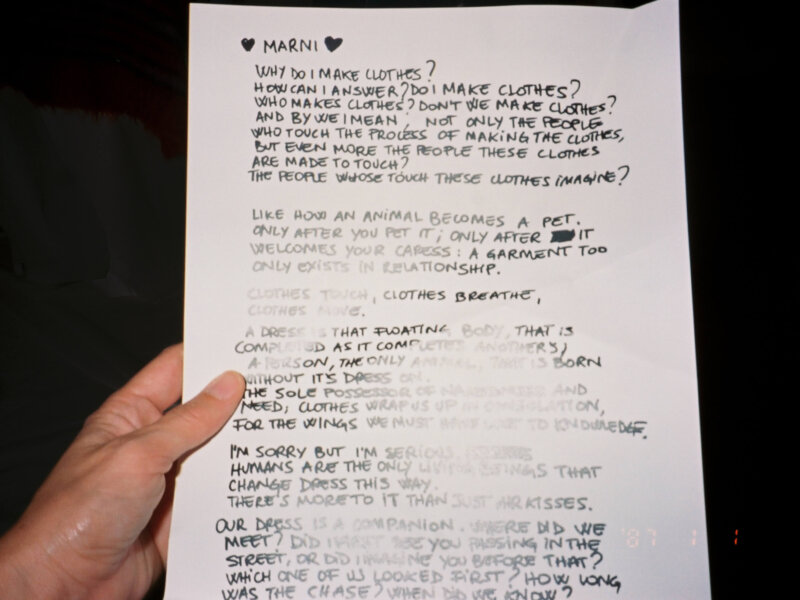 ♥ MARNI ♥
WHY DO I MAKE CLOTHES?
HOW CAN I ANSWER? DO I MAKE CLOTHES?
WHO MAKES CLOTHES? DON'T WE MAKE CLOTHES?
AND BY WE I MEAN, NOT ONLY THE PEOPLE
WHO TOUCH THE PROCESS OF MAKING THE CLOTHES,
BUT EVEN MORE THE PEOPLE THESE CLOTHES
ARE MADE TO TOUCH?
THE PEOPLE WHOSE TOUCH THESE CLOTHES IMAGINE?
LIKE HOW AN ANIMAL BECOMES A PET.
ONLY AFTER YOU PET IT; ONLY AFTER IT
WELCOMES YOUR CARESS: A GARMENT TOO
ONLY EXISTS IN RELATIONSHIP.
CLOTHES TOUCH, CLOTHES BREATHE,
CLOTHES MOVE.
A DRESS IS THAT FLOATING BODY, THAT IS
COMPLETED AS IT COMPLETES ANOTHERS;
A PERSON, THE ONLY ANIMAL, THAT IS BORN
WITHOUT IT'S DRESS ON.
THE SOLE POSSESSOR OF NAKEDNESS AND
NEED; CLOTHES WRAP US UP IN CONSOLATION,
FOR THE WINGS WE MUST HAVE LOST TO KNOWLEDGE.
I'M SORRY BUT I'M SERIOUS.
HUMANS ARE THE ONLY LIVING BEINGS THAT
CHANGE DRESS THIS WAY.
THERE'S MORE TO IT THAN JUST AIR KISSES.
OUR DRESS IS A COMPANION. WHERE DID WE
MEET? DID I FIRST SEE YOU PASSING IN THE
STREET, OR DID I IMAGINE YOU BEFORE THAT?
WHICH ONE OF US LOOKED FIRST? HOW LONG
WAS THE CHASE? WHEN DID WE KNOW?
'87 1 1